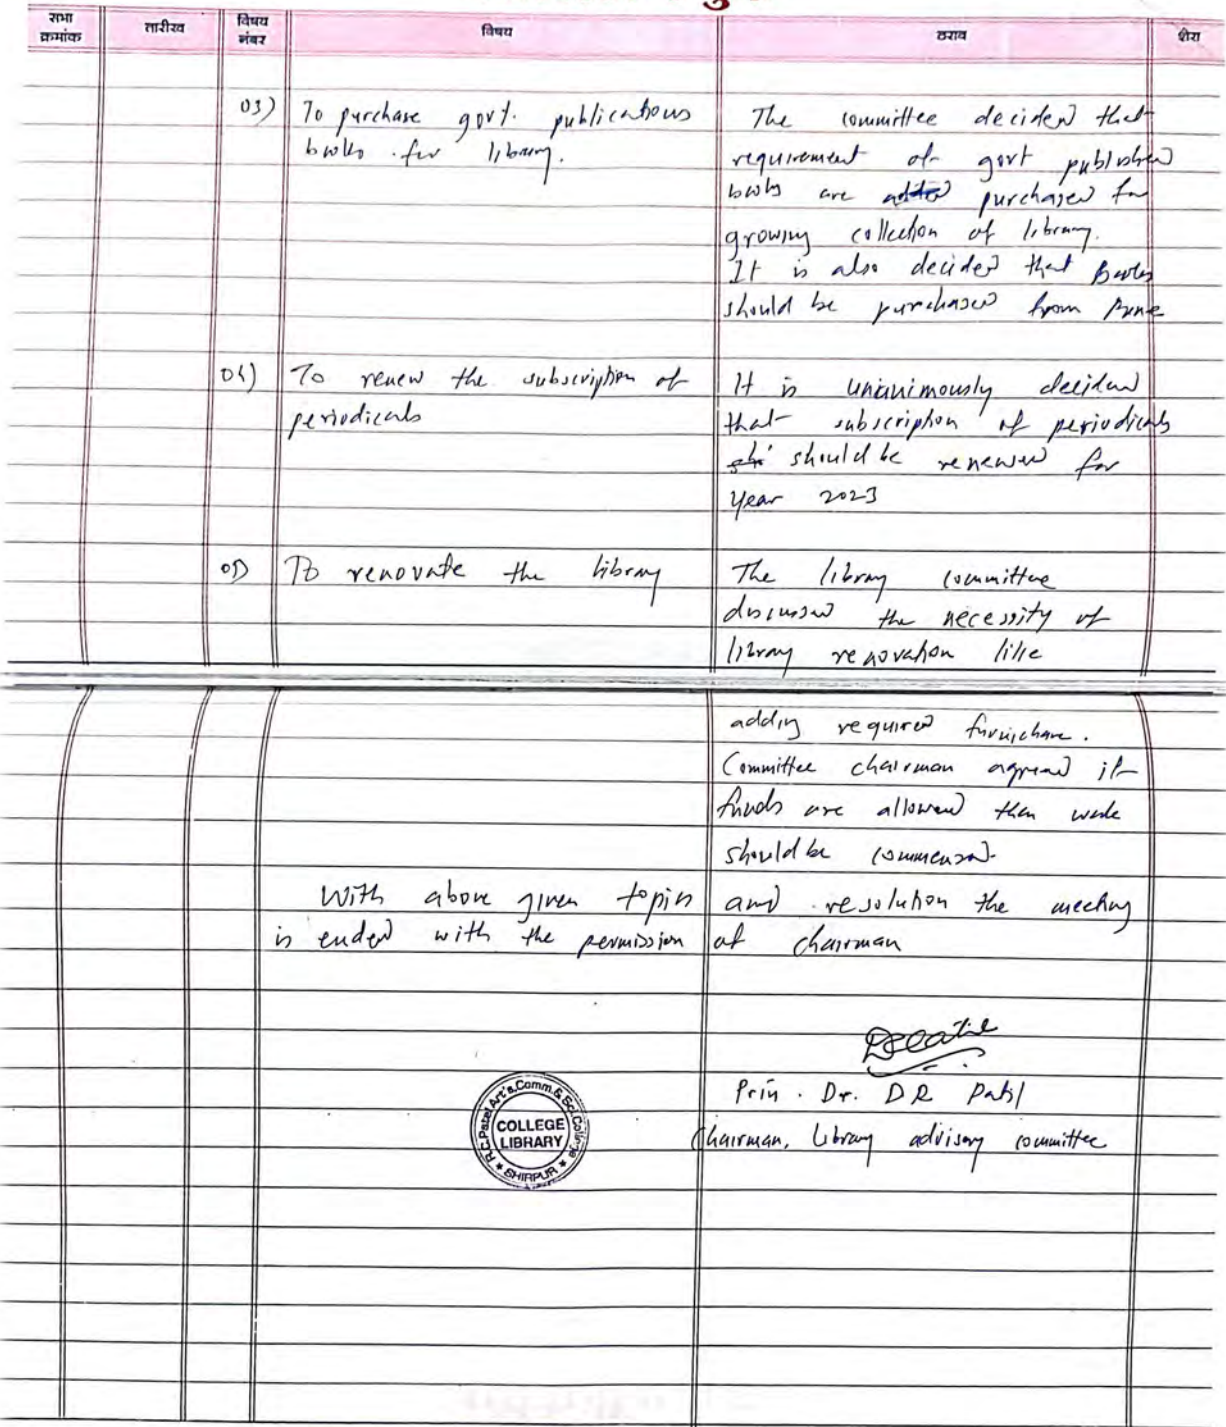 सभा क्रमांक
तारीख
विषय नंबर
विषय
ठराव
शेरा
03) To purchase govt. publications
books for library.
The committee decided that
requirement of govt published
books are purchased for
growing collection of library.
It is also decided that Books
should be purchased from Pune
04) To renew the subscription of
periodicals
It is unanimously decided
that subscription of periodicals
should be renewed for
year 2023
05) To renovate the library
The library committee
discussed the necessity of
library renovation like
adding required
Committee chairman agreed if
funds are allowed then work
should be
With above given topics and resolution the meeting
is ended with the permission of chairman
Prin. Dr. D R Patil
Chairman, Library advisory committee
R.C.Patel Art's,Comm.& Sci.College
COLLEGE
LIBRARY
* SHIRPUR *